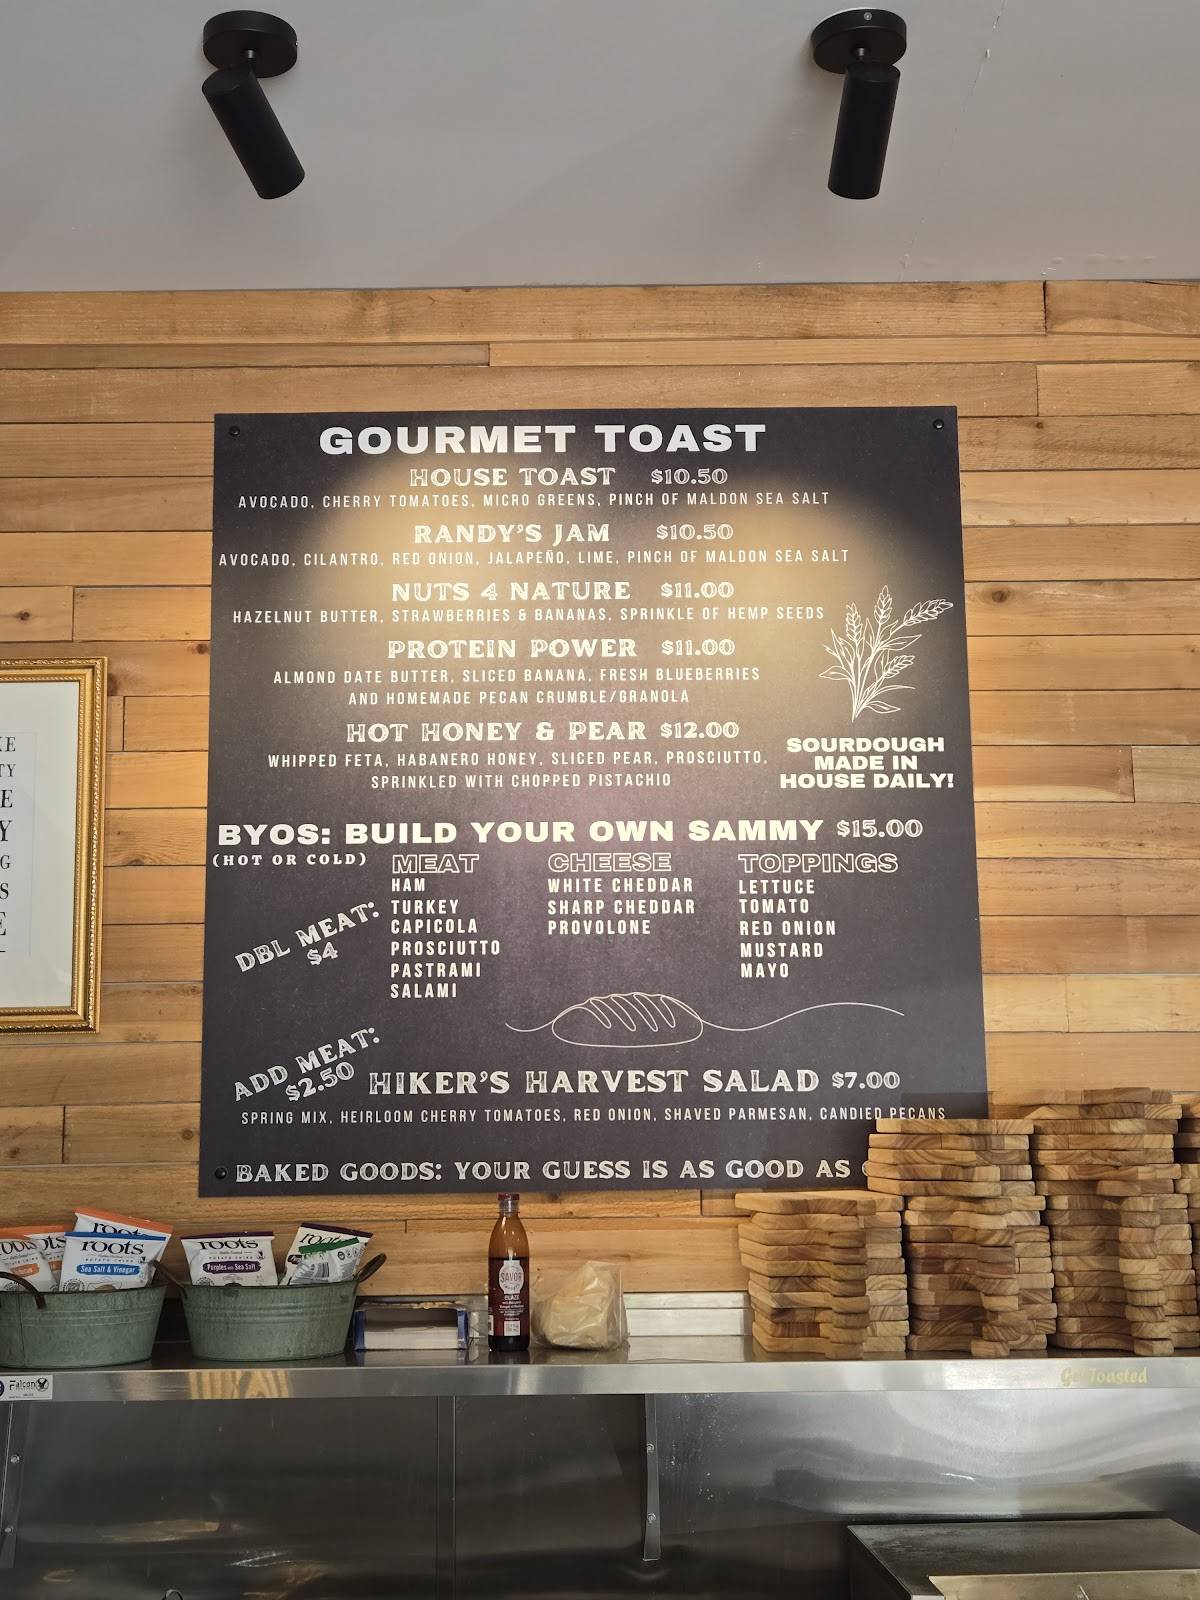 GOURMET TOAST
HOUSE TOAST $10.50
AVOCADO, CHERRY TOMATOES, MICRO GREENS, PINCH OF MALDON SEA SALT
RANDY'S JAM $10.50
AVOCADO, CILANTRO, RED ONION, JALAPEÑO, LIME, PINCH OF MALDON SEA SALT
NUTS 4 NATURE $11.00
HAZELNUT BUTTER, STRAWBERRIES & BANANAS, SPRINKLE OF HEMP SEEDS
PROTEIN POWER $11.00
ALMOND DATE BUTTER, SLICED BANANA, FRESH BLUEBERRIES
AND HOMEMADE PECAN CRUMBLE/GRANOLA
HOT HONEY & PEAR $12.00
WHIPPED FETA, HABANERO HONEY, SLICED PEAR, PROSCIUTTO,
SPRINKLED WITH CHOPPED PISTACHIO
SOURDOUGH
MADE IN
HOUSE DAILY!
BYOS: BUILD YOUR OWN SAMMY $15.00
(HOT OR COLD)
MEAT
HAM
TURKEY
CAPICOLA
PROSCIUTTO
PASTRAMI
SALAMI
CHEESE
WHITE CHEDDAR
SHARP CHEDDAR
PROVOLONE
TOPPINGS
LETTUCE
TOMATO
RED ONION
MUSTARD
MAYO
DBL MEAT:
$4
ADD MEAT:
$2.50
HIKER'S HARVEST SALAD $7.00
SPRING MIX, HEIRLOOM CHERRY TOMATOES, RED ONION, SHAVED PARMESAN, CANDIED PECANS
BAKED GOODS: YOUR GUESS IS AS GOOD AS
roots
roots
Sea Salt & Vinegar
roots
POTATO CHIPS
Purples with Sea Salt
SAVOR
GLAZE
Falcon
Get Toasted